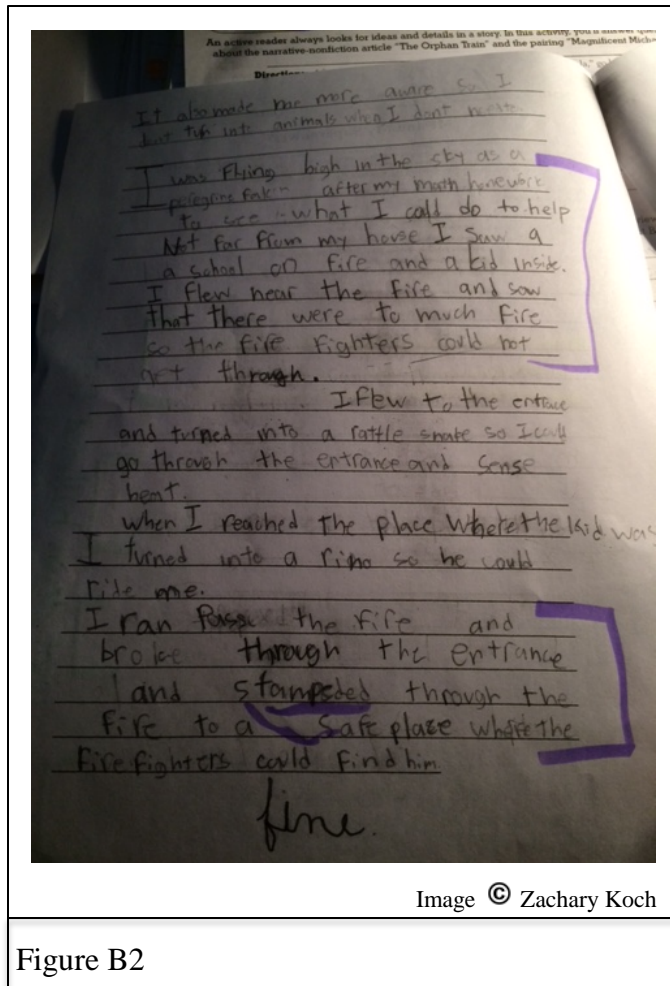 An active reader always looks for ideas and details in a story. In this activity, you'll answer
about the narrative-nonfiction article "The Orphan Train" and the pairing "Magnificent
It also made me more aware so I
turn into animals when I dont
I was Flying high in the sky as a
peregrine after my math homework
to see what I calld do to help
Not far from my house I saw a
a school on fire and a kid inside.
I flew near the fire and saw
that there were to much fire
so the fire fighters could not
get through.
I flew to the entrace
and turned into a rattle snake so I
go through the entrance and sense
heat.
when I reached the place where the kid was
I turned into a rino so he could
ride me.
I ran Pass the fire and
broke through the entrance
and stampeded through the
fire to a safe place where the
fire fighters could find him.
fine.
Image © Zachary Koch
Figure B2